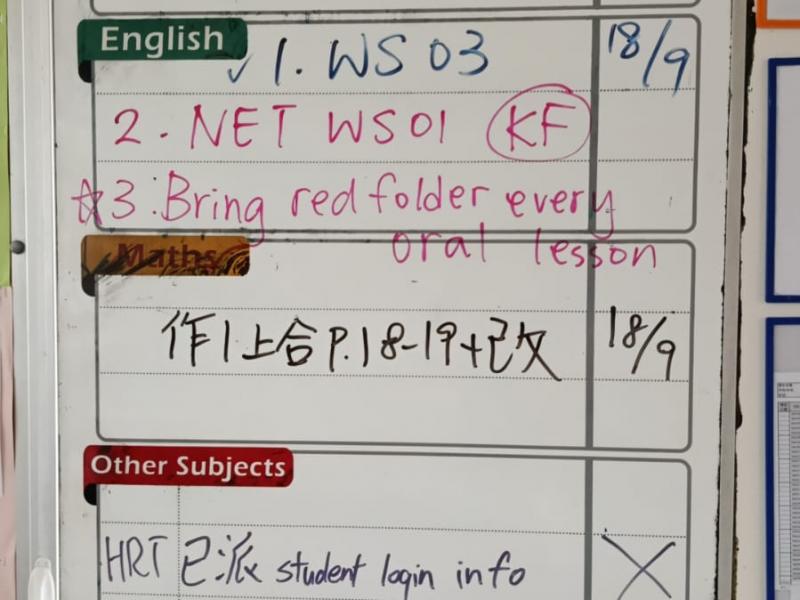 English
✓ 1. WS 03 18/9
2. NET WS01 KF
☆3. Bring red folder every
oral lesson
Maths
作1上合P.18-19+改 18/9
Other Subjects
HRT 已派 student login info X